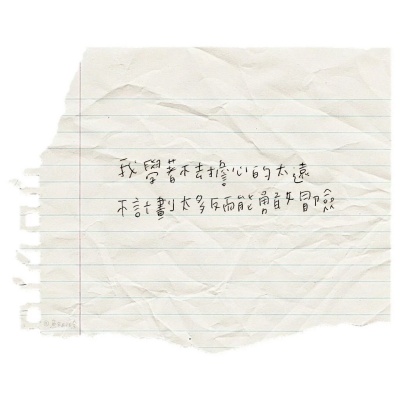 我學著不去擔心的太遠
不計劃太多反而能勇敢冒險